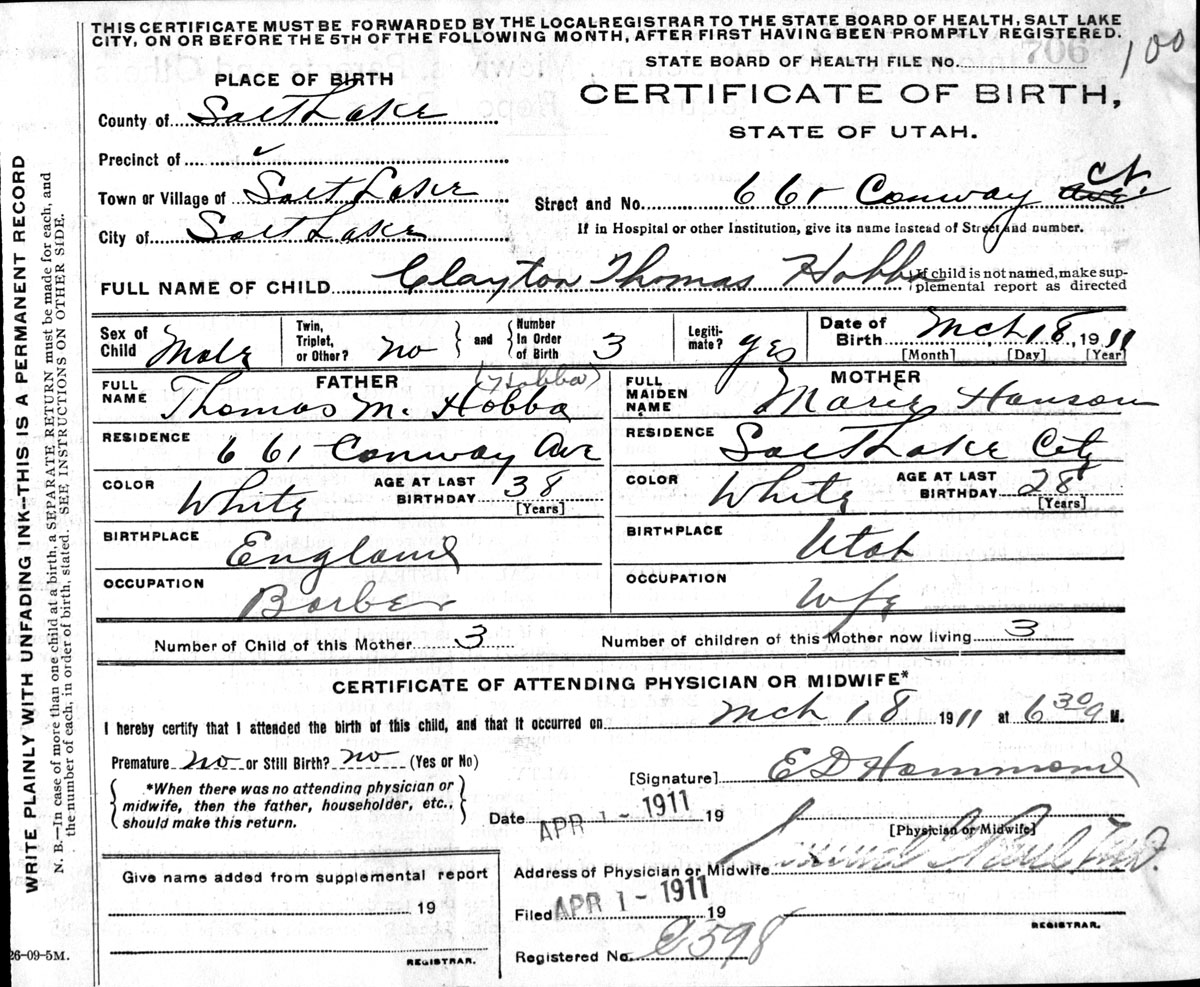 THIS CERTIFICATE MUST BE FORWARDED BY THE LOCAL REGISTRAR TO THE STATE BOARD OF HEALTH, SALT LAKE
CITY, ON OR BEFORE THE 5TH OF THE FOLLOWING MONTH, AFTER FIRST HAVING BEEN PROMPTLY REGISTERED.
STATE BOARD OF HEALTH FILE No. 706 100
PLACE OF BIRTH
CERTIFICATE OF BIRTH,
STATE OF UTAH.
County of Salt Lake
Precinct of
Town or Village of Salt Lake
Street and No. 661 Conway Ave Ct.
City of Salt Lake
If in Hospital or other Institution, give its name instead of Street and number.
FULL NAME OF CHILD Clayton Thomas Hobba
If child is not named, make sup-
plemental report as directed
Sex of Child Male
Twin, Triplet, or Other? no
and
Number In Order of Birth 3
Legiti-mate? yes
Date of Birth Mch 18, 1911
[Month] [Day] [Year]
FATHER
FULL NAME Thomas M. Hobba (Hobba)
MOTHER
FULL MAIDEN NAME Marie Hanson
RESIDENCE 661 Conway Ave
RESIDENCE Salt Lake City
COLOR White AGE AT LAST BIRTHDAY 38 [Years]
COLOR White AGE AT LAST BIRTHDAY 28 [Years]
BIRTHPLACE England
BIRTHPLACE Utah
OCCUPATION Barber
OCCUPATION Wfe
Number of Child of this Mother 3 Number of children of this Mother now living 3
CERTIFICATE OF ATTENDING PHYSICIAN OR MIDWIFE*
I hereby certify that I attended the birth of this child, and that it occurred on Mch 18 1911 at 6 30 a M.
Premature no or Still Birth? no (Yes or No)
[Signature] E D Hammond
*When there was no attending physician or
midwife, then the father, householder, etc.,
should make this return.
Date APR 1 - 1911 19
[Physician or Midwife]
Address of Physician or Midwife
Give name added from supplemental report
19
REGISTRAR.
Filed APR 1 - 1911 19
REGISTRAR.
Registered No. 2598
WRITE PLAINLY WITH UNFADING INK—THIS IS A PERMANENT RECORD
N. B.—In case of more than one child at a birth, a SEPARATE RETURN must be made for each, and
the number of each, in order of birth, stated. SEE INSTRUCTIONS ON OTHER SIDE.
26-09-5M.